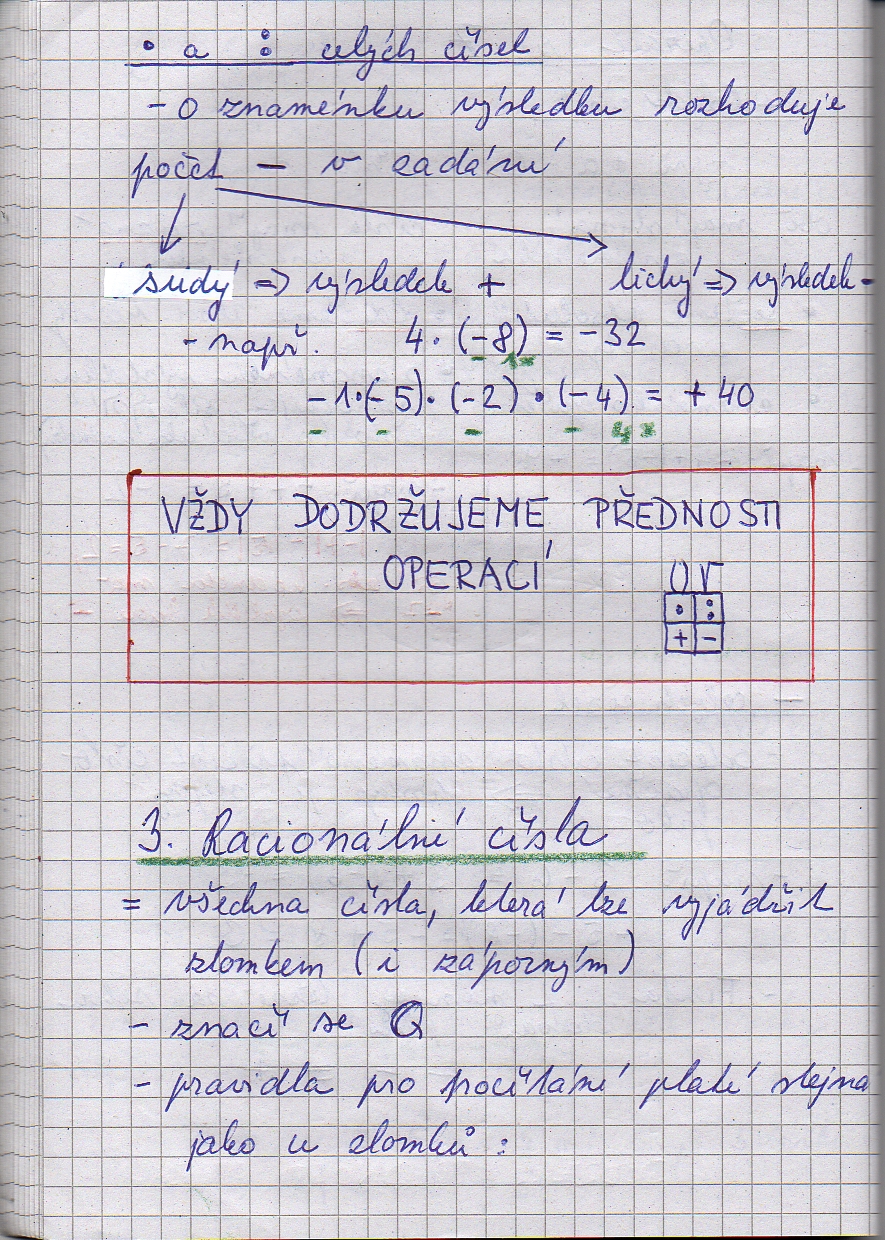 • a : celých čísel
- o znaménku výsledku rozhoduje
počet − v zadání
sudý => výsledek + lichý => výsledek -
- např. 4 · (-8) = -32
- 1x
-1·(-5)·(-2)·(-4) = +40
- - - - 4x
VŽDY DODRŽUJEME PŘEDNOSTI
OPERACÍ
() √
· :
+ −
3. Racionální čísla
= všechna čísla, která lze vyjádřit
zlomkem (i záporným)
- značí se Q
- pravidla pro počítání platí stejná
jako u zlomků :